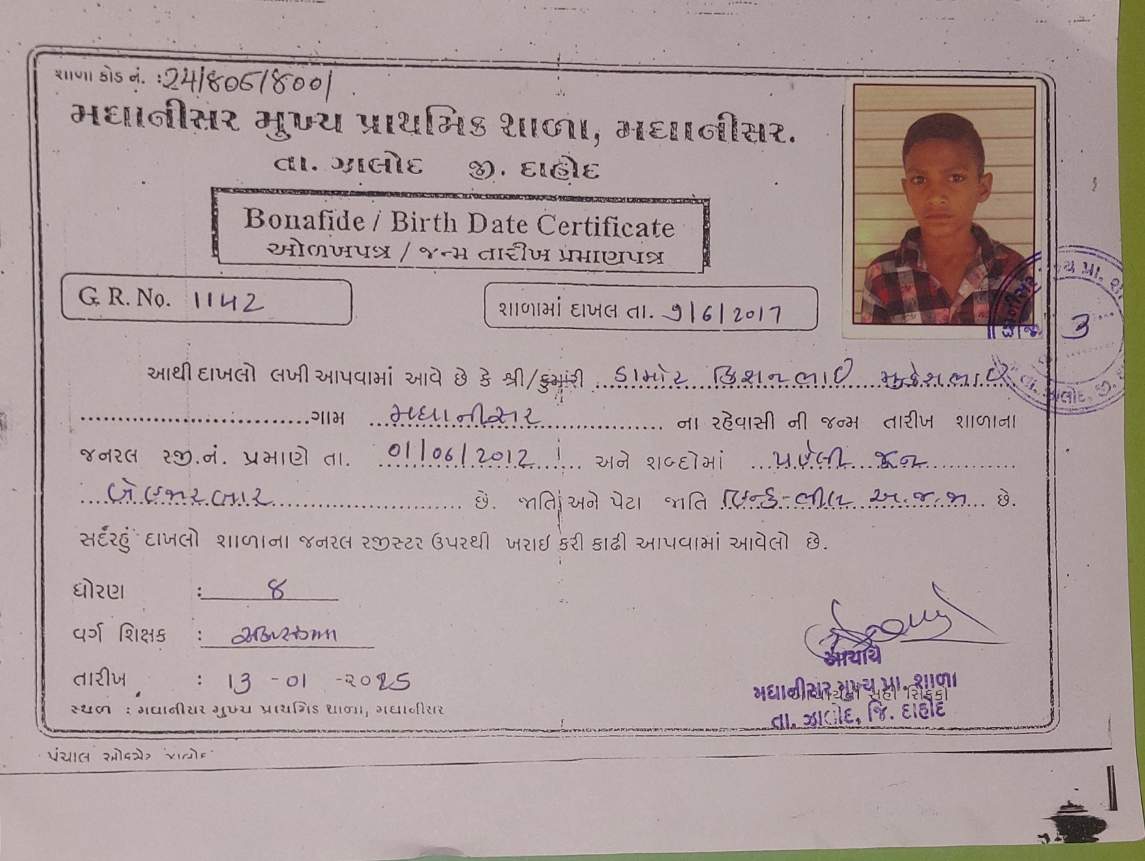 શાળા કોડ નં. :24180618001
મધાનીસર મુખ્ય પ્રાથમિક શાળા, મધાનીસર.
તા. ઝાલોદ જી. દાહોદ
Bonafide / Birth Date Certificate
ઓળખપત્ર / જન્મ તારીખ પ્રમાણપત્ર
G. R. No. 1142
શાળામાં દાખલ તા. 9/6/2017
આથી દાખલો લખી આપવામાં આવે છે કે શ્રી/કુમારી ડામોર કિશનભાઈ મુકેશભાઈ
ગામ મધાનીસર ના રહેવાસી ની જન્મ તારીખ શાળાના
જનરલ રજી.નં. પ્રમાણે તા. 01/06/2012 અને શબ્દોમાં પહેલી જુન
બે હજાર બાર છે. જાતિ અને પેટા જાતિ હિન્દુ-ભીલ અ.જ.જા છે.
સદંરહું દાખલો શાળાના જનરલ રજીસ્ટર ઉપરથી ખરાઇ કરી કાઢી આપવામાં આવેલો છે.
ધોરણ : 8
વર્ગ શિક્ષક :
તારીખ : 13-01-2025
આચાર્ય
મધાનીસર મુખ્ય પ્રા. શાળા
તા. ઝાલોદ, જિ. દાહોદ
સ્થળ : મધાનીસર મુખ્ય પ્રાથમિક શાળા, મધાનીસર
3
પંચાલ ઓફસેટ ઝાલોદ